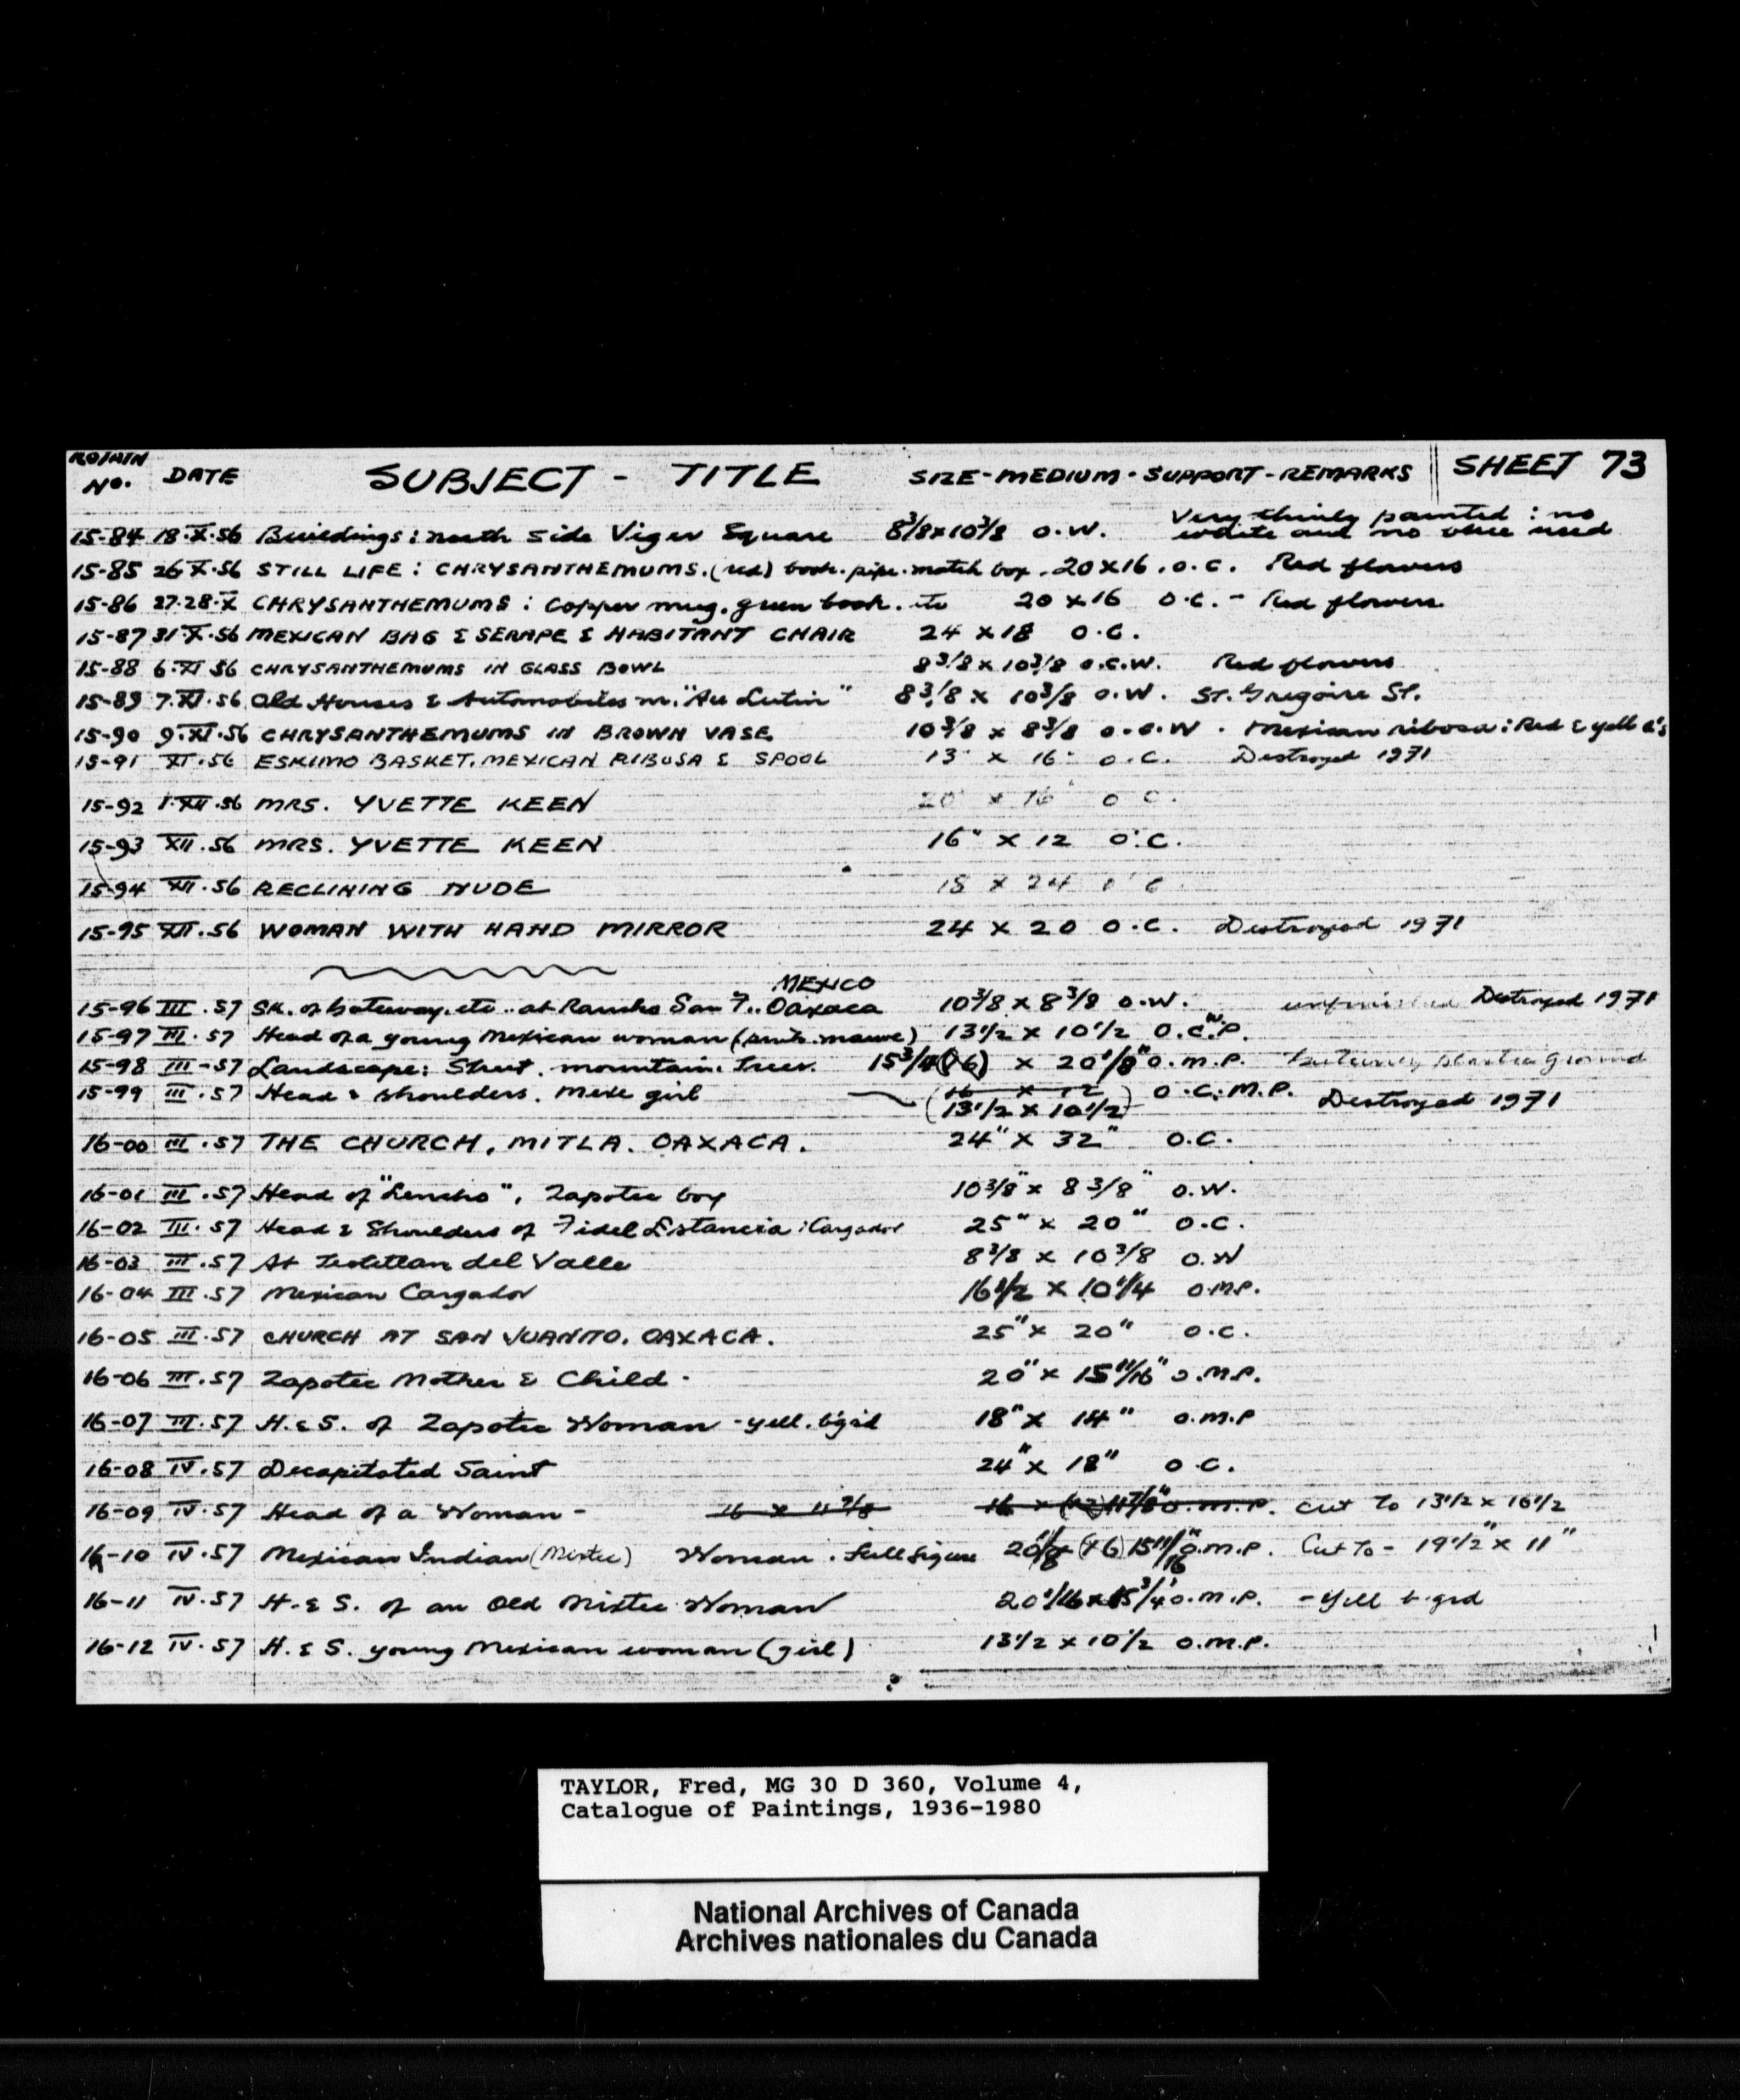 No. DATE SUBJECT - TITLE SIZE - MEDIUM - SUPPORT - REMARKS SHEET 73
15-84 18·X·56 Buildings: north side Viger Square 8 3/8 x 10 3/8 O.W. Very thinly painted: no white and no used
15-85 26·X·56 STILL LIFE: CHRYSANTHEMUMS. (red) book. pipe. match box. 20 x 16. O.C. Red flowers
15-86 27·28·X CHRYSANTHEMUMS: Copper mug. green book. etc 20 x 16 O.C. - Red flowers.
15-87 31·X·56 MEXICAN BAG & SERAPE & HABITANT CHAIR 24 x 18 O.C.
15-88 6·XI·56 CHRYSANTHEMUMS IN GLASS BOWL 8 3/8 x 10 3/8 O.C.W. Red flowers
15-89 7·XI·56 Old Houses & Automobiles "Au Lutin" 8 3/8 x 10 3/8 O.W. St. Gregoire St.
15-90 9·XI·56 CHRYSANTHEMUMS IN BROWN VASE 10 3/8 x 8 3/8 O.C.W. Mexican ribosa: Red & yell
15-91 XI·56 ESKIMO BASKET, MEXICAN RIBOSA & SPOOL 13" x 16" O.C. Destroyed 1971
15-92 1·XII·56 MRS. YVETTE KEEN 20" x 16" O C.
15-93 XII·56 MRS. YVETTE KEEN 16" x 12 O.C.
15-94 XII·56 RECLINING NUDE 18 x 24 O C
15-95 XII·56 WOMAN WITH HAND MIRROR 24 x 20 O.C. Destroyed 1971
MEXICO
15-96 III·57 SK. of Gateway, etc.. at Rancho San F.. Oaxaca 10 3/8 x 8 3/8 O.W. unfinished Destroyed 1971
15-97 III·57 Head of a young Mexican woman (pink. mauve) 13 1/2 x 10 1/2 O.C.P.
15-98 III-57 Landscape: Street, mountain. Trees. 15 3/4 (x6) x 20 1/8" O.M.P. ground
15-99 III·57 Head & shoulders. Mexe girl 16 x 12 O.C.M.P. Destroyed 1971
(13 1/2 x 10 1/2)
16-00 III·57 THE CHURCH, MITLA. OAXACA. 24" x 32" O.C.
16-01 III·57 Head of "Lencho", Zapotec boy 10 3/8" x 8 3/8" O.W.
16-02 III·57 Head & Shoulders of Fidel Estancia: Cargador 25" x 20" O.C.
16-03 III·57 At Teotitlan del Valle 8 3/8 x 10 3/8 O.W
16-04 III·57 Mexican Cargador 16 1/2 x 10 1/4 O.M.P.
16-05 III·57 CHURCH AT SAN JUANITO, OAXACA. 25" x 20" O.C.
16-06 III·57 Zapotec Mother & Child - 20" x 15 11/16" O.M.P.
16-07 III·57 H. & S. of Zapotec Woman - yell. b'g'd 18" x 14" O.M.P
16-08 IV·57 Decapitated Saint 24" x 18" O.C.
16-09 IV·57 Head of a Woman - 16 x 11 7/8 16 x (12) 11 7/8" O.M.P. Cut to 13 1/2 x 10 1/2
16-10 IV·57 Mexican Indian (Mixtec) Woman. Full figure 20 1/8 (16) 15 11/16" O.M.P. Cut to - 19 1/2" x 11"
16-11 IV·57 H. & S. of an Old Mixtec Woman 20 1/16 x 15 3/4 O.M.P. - Yell b'grd
16-12 IV·57 H. & S. young Mexican woman (girl) 13 1/2 x 10 1/2 O.M.P.
TAYLOR, Fred, MG 30 D 360, Volume 4,
Catalogue of Paintings, 1936-1980
National Archives of Canada
Archives nationales du Canada